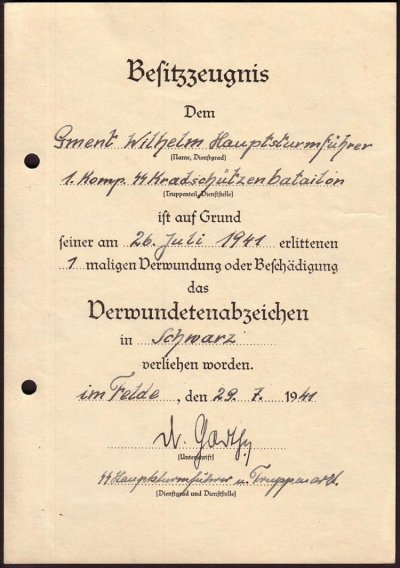 Besitzzeugnis
Dem
Gment Wilhelm Hauptsturmführer
(Name, Dienstgrad)
1. Komp. SS Kradschützenbatailon
(Truppenteil, Dienststelle)
ist auf Grund
seiner am 26. Juli 1941 erlittenen
1 maligen Verwundung oder Beschädigung
das
Verwundetenabzeichen
in Schwarz
verliehen worden.
im Felde, den 29. 7. 1941
(Unterschrift)
SS Hauptsturmführer u. Truppenarzt.
(Dienstgrad und Dienststelle)